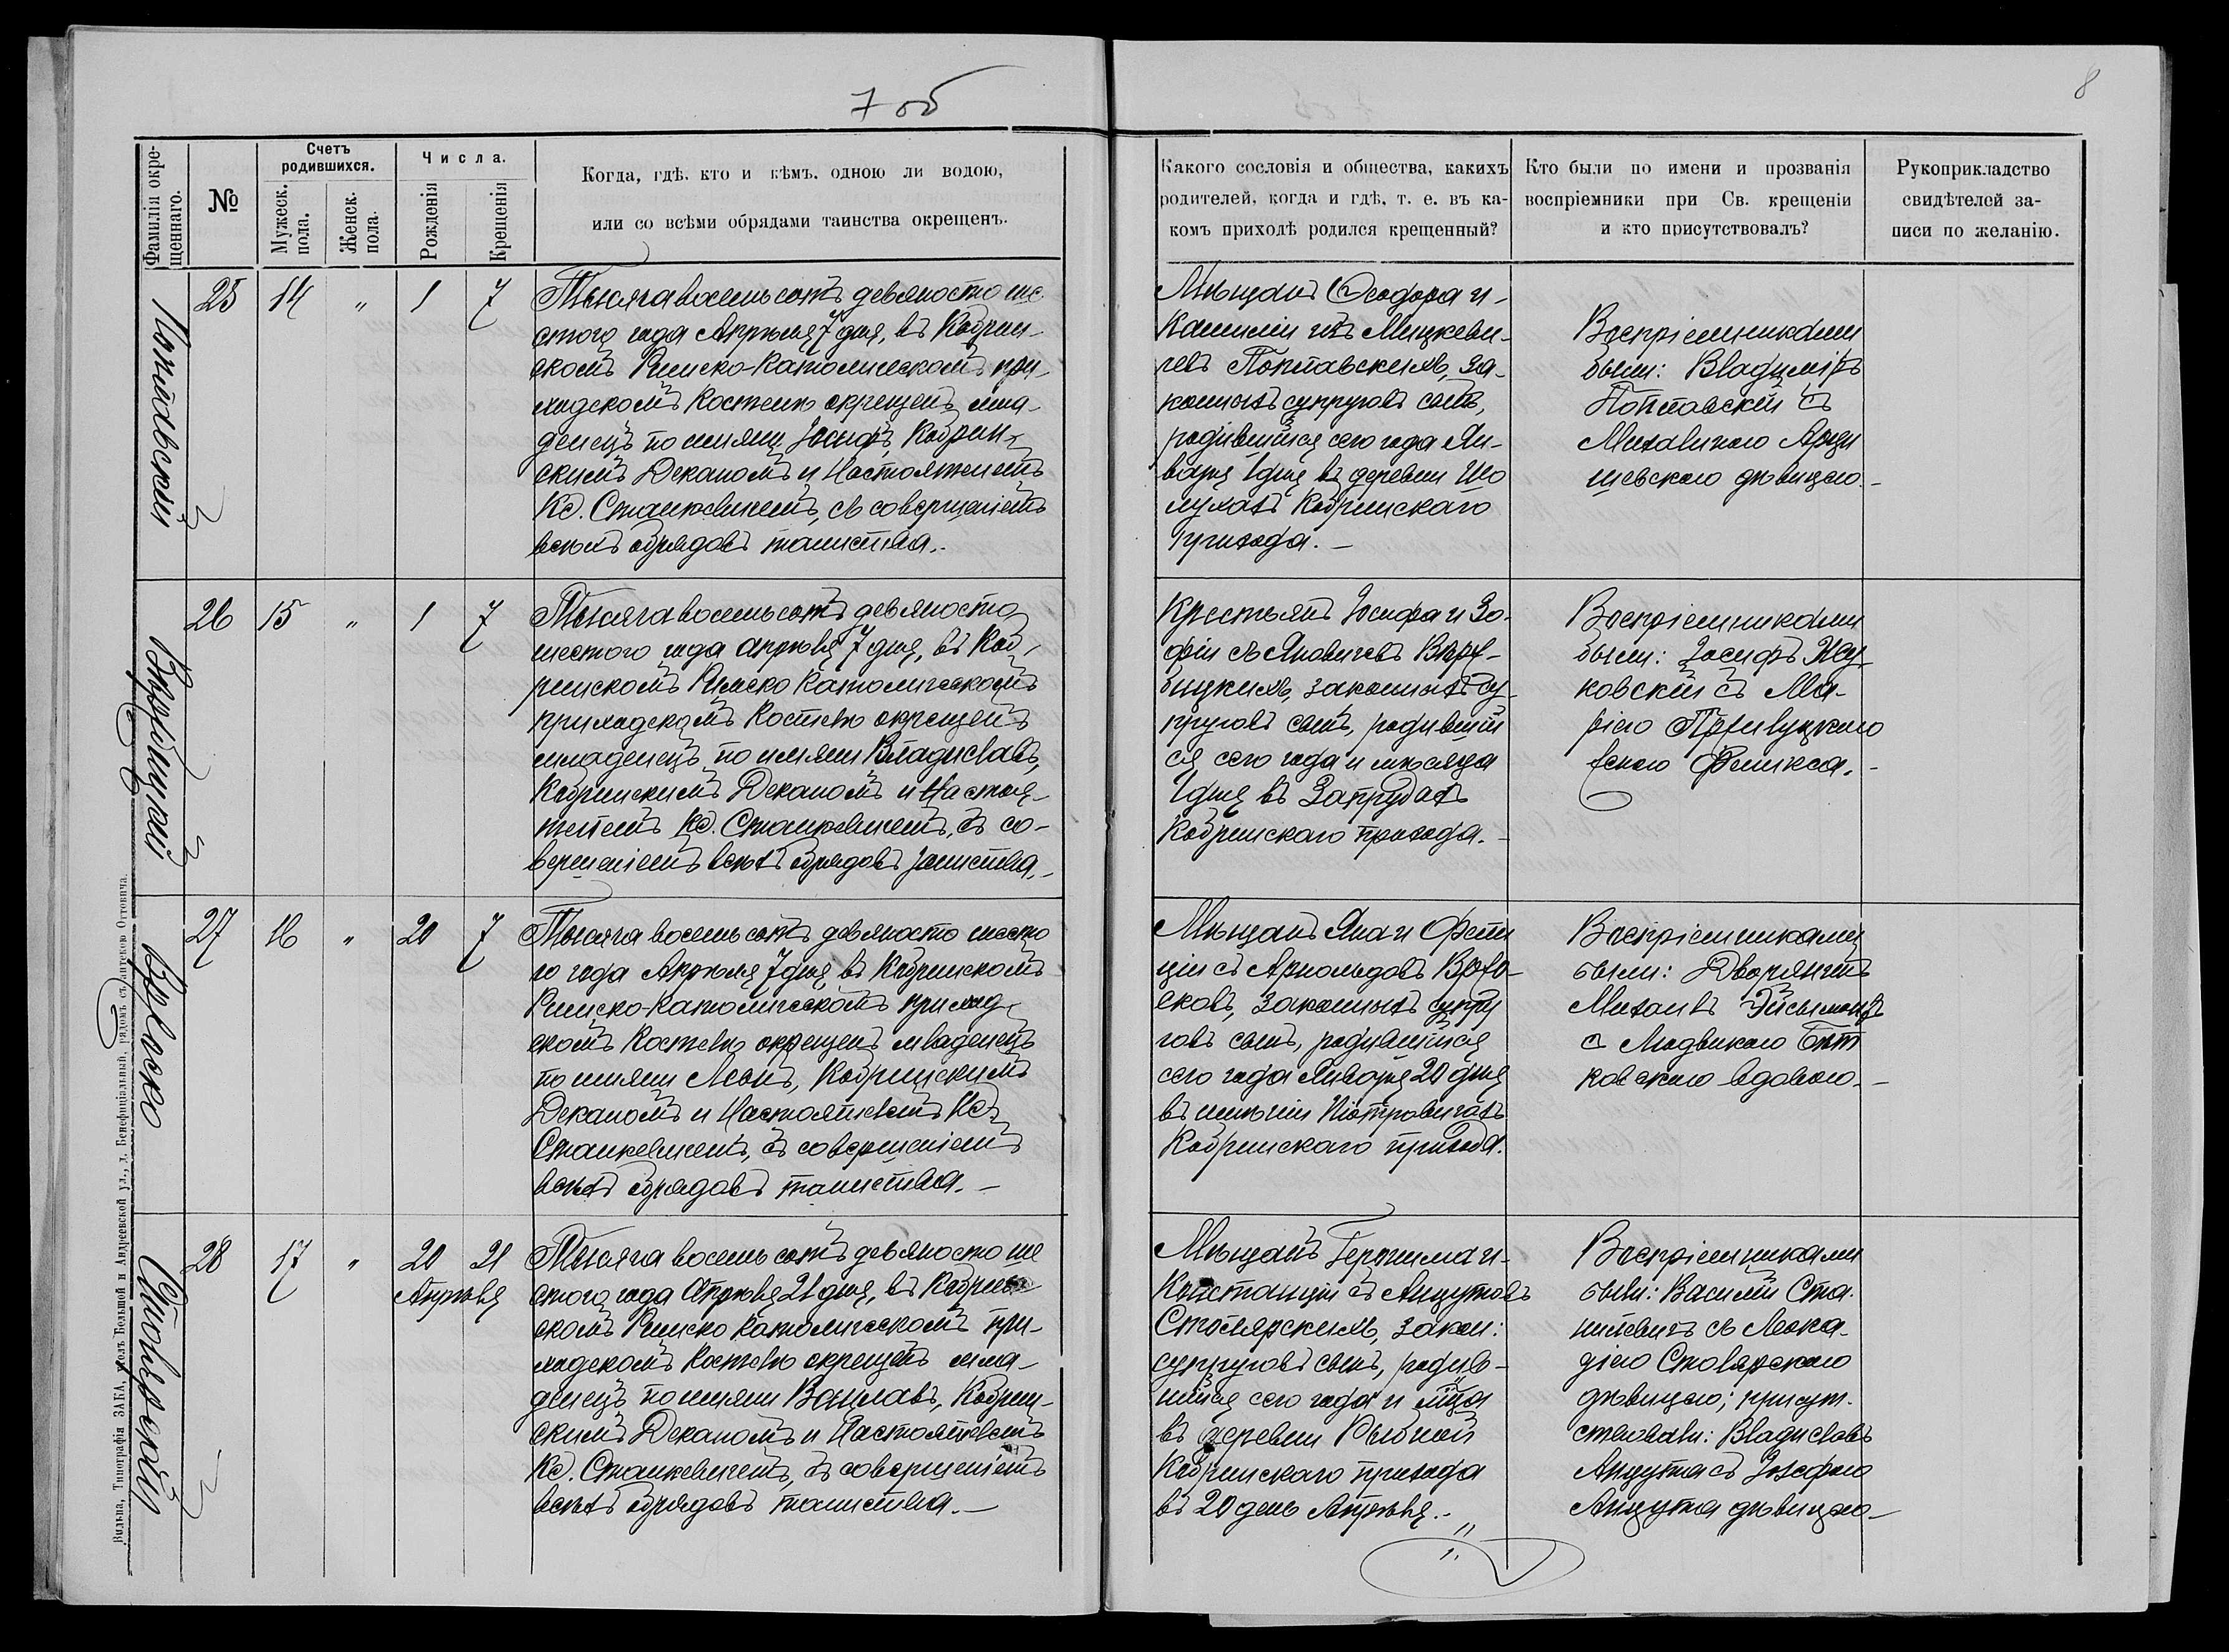 7 об
8
Фамилія окре-
щеннаго.
№
Счетъ
родившихся.
Мужеск.
пола.
Женск.
пола.
Числа.
Рожденія
Крещенія
Когда, гдѣ, кто и кѣмъ, одною ли водою,
или со всѣми обрядами таинства окрещенъ.
Какого сословія и общества, какихъ
родителей, когда и гдѣ, т. е. въ ка-
комъ приходѣ родился крещенный?
Кто были по имени и прозванія
воспріемники при Св. крещеніи
и кто присутствовалъ?
Рукоприкладство
свидѣтелей за-
писи по желанію.
25 14 " 1 7
Тысяча восемь сотъ девяносто ше
стого года Апрѣля 7 дня, въ Кобрин-
скомъ Римско-Католическомъ при-
ходскомъ Костелѣ окрещенъ мла-
денецъ по имяни Іосифъ, Кобрин-
скимъ Деканомъ и Настоятелемъ
Кс. Станкевичемъ, съ совершеніемъ
всѣхъ обрядовъ таинства.
Мѣщанъ Ѳеодора и-
Камиліи изъ Мицкеви-
чевъ Полтавскихъ, за-
конныхъ супруговъ сынъ,
родившійся сего года Ян-
варя 1 дня въ деревни
Кобринскаго
прихода.-
Воспріемниками
были: Владиміръ
Полтавскій съ
Михалиною Арци
шевскою дѣвицею.-
26 15 " 1 7
Тысяча восемь сотъ девяносто
шестого года Апрѣля 7 дня, въ Коб-
ринскомъ Римско Католическомъ
приходскомъ Костелѣ окрещенъ
младенецъ по имяни Владиславъ,
Кобринскимъ Деканомъ и Настоя-
телемъ Кс. Станкевичемъ, съ со-
вершеніемъ всѣхъ обрядовъ таинства.-
Крестьянъ Іосифа и Зо-
фіи съ Яновичевъ
законныхъ су-
пруговъ сынъ, родившій
ся сего года и мѣсяца
1 дня въ Запрудахъ
Кобринскаго прихода.-
Воспріемниками
были: Іосифъ Жу-
ковскій съ Ма-
ріею
женою Феликса.-
Врублевскій
27 16 " 20 7
Тысяча восемь сотъ девяносто шесто
го года Апрѣля 7 дня, въ Кобринскомъ
Римско-Католическомъ приход-
скомъ Костелѣ окрещенъ младенецъ
по имяни Леонъ, Кобринскимъ
Деканомъ и Настоятелемъ Кс.
Станкевичемъ, съ совершеніемъ
всѣхъ обрядовъ таинства.-
Мѣщанъ Яна и Фели
ціи съ Арнольдовъ
законныхъ супру
говъ сынъ, родившійся
сего года Января 20 дня
въ имѣніи Піотровичахъ
Кобринскаго прихода.
Воспріемниками
были: Дворянинъ
Михаилъ Эйсымондъ
с Людвикою
ковскою вдовою.-
Столярскій
28 17 " 20 21
Апрѣля
Тысяча восемь сотъ девяносто ше
стого года Апрѣля 21 дня, въ Кобрин
скомъ Римско Католическомъ при-
ходскомъ Костелѣ окрещенъ мла-
денецъ по имяни Вацлавъ, Кобрин-
скимъ Деканомъ и Настоятелемъ
Кс. Станкевичемъ, съ совершеніемъ
всѣхъ обрядовъ таинства.-
Мѣщанъ Геронима и-
Констанціи съ Анцутовъ
Столярскихъ, закон:
супруговъ сынъ, родив-
шійся сего года и мѣца
въ деревни Рыбной
Кобринскаго прихода
въ 20 день Апрѣля.-
Воспріемниками
были: Василій Ста-
нилевичъ съ Леока-
діею Столярскою
дѣвицею; присут-
ствовали: Владиславъ
Анцута съ Іозефою
Анцута дѣвицею-
Вильна, Типографія ЗАКА, уголъ Большой и Андреевской ул., д. Бенефиціальный, рядомъ съ аптекою Оттовича.